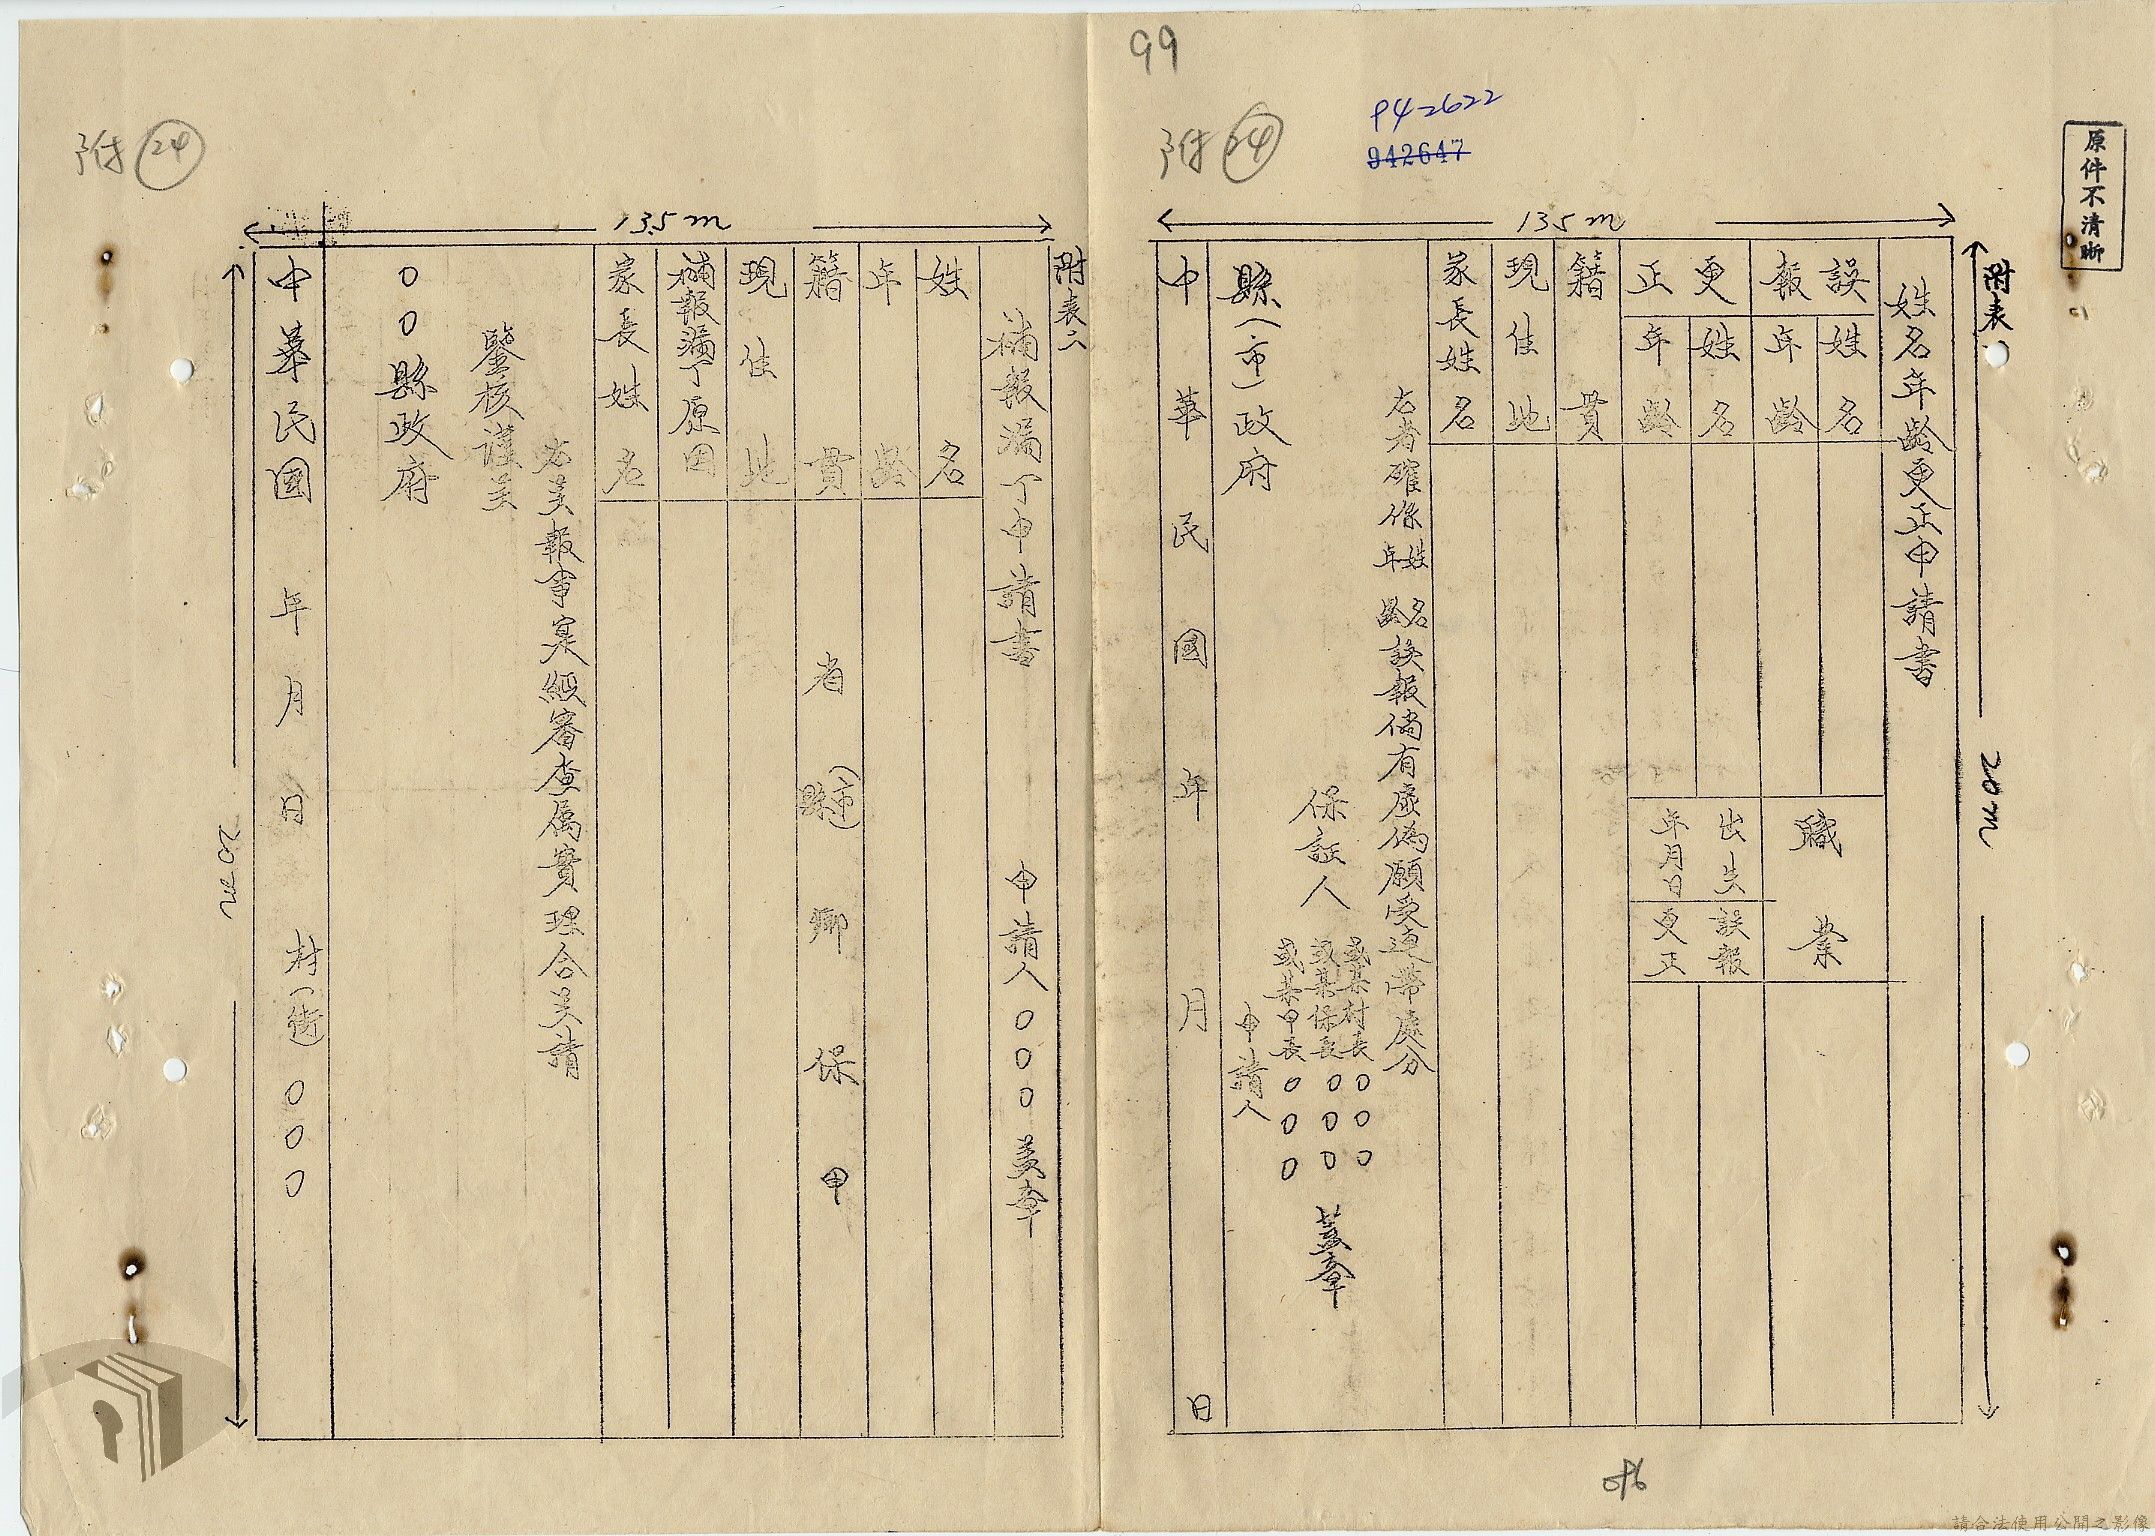 99
附 24
942622
942647
原件不清晰
135m
20m
附表一
姓名年齡更正申請書
誤報
姓名
年齡
更正
姓名
年齡
職業
出生年月日
誤報
更正
籍貫
現住地
家長姓名
右者確係姓名年齡誤報倘有虛偽願受連帶處分
保証人
或某村長〇〇〇
或某保長〇〇〇
或某甲長〇〇〇
蓋章
申請人
縣(市)政府
中華民國年月日
附 24
13.5m
20m
附表二
補報漏丁申請書
申請人〇〇〇蓋章
姓名
年齡
籍貫
省
縣(市)
鄉
保
甲
現住地
補報漏丁原因
家長姓名
報事実經審查屬實理合
請
鑒核謹
〇〇縣政府
中華民國 年 月 日
村(街)〇〇〇
請合法使用公開之影像